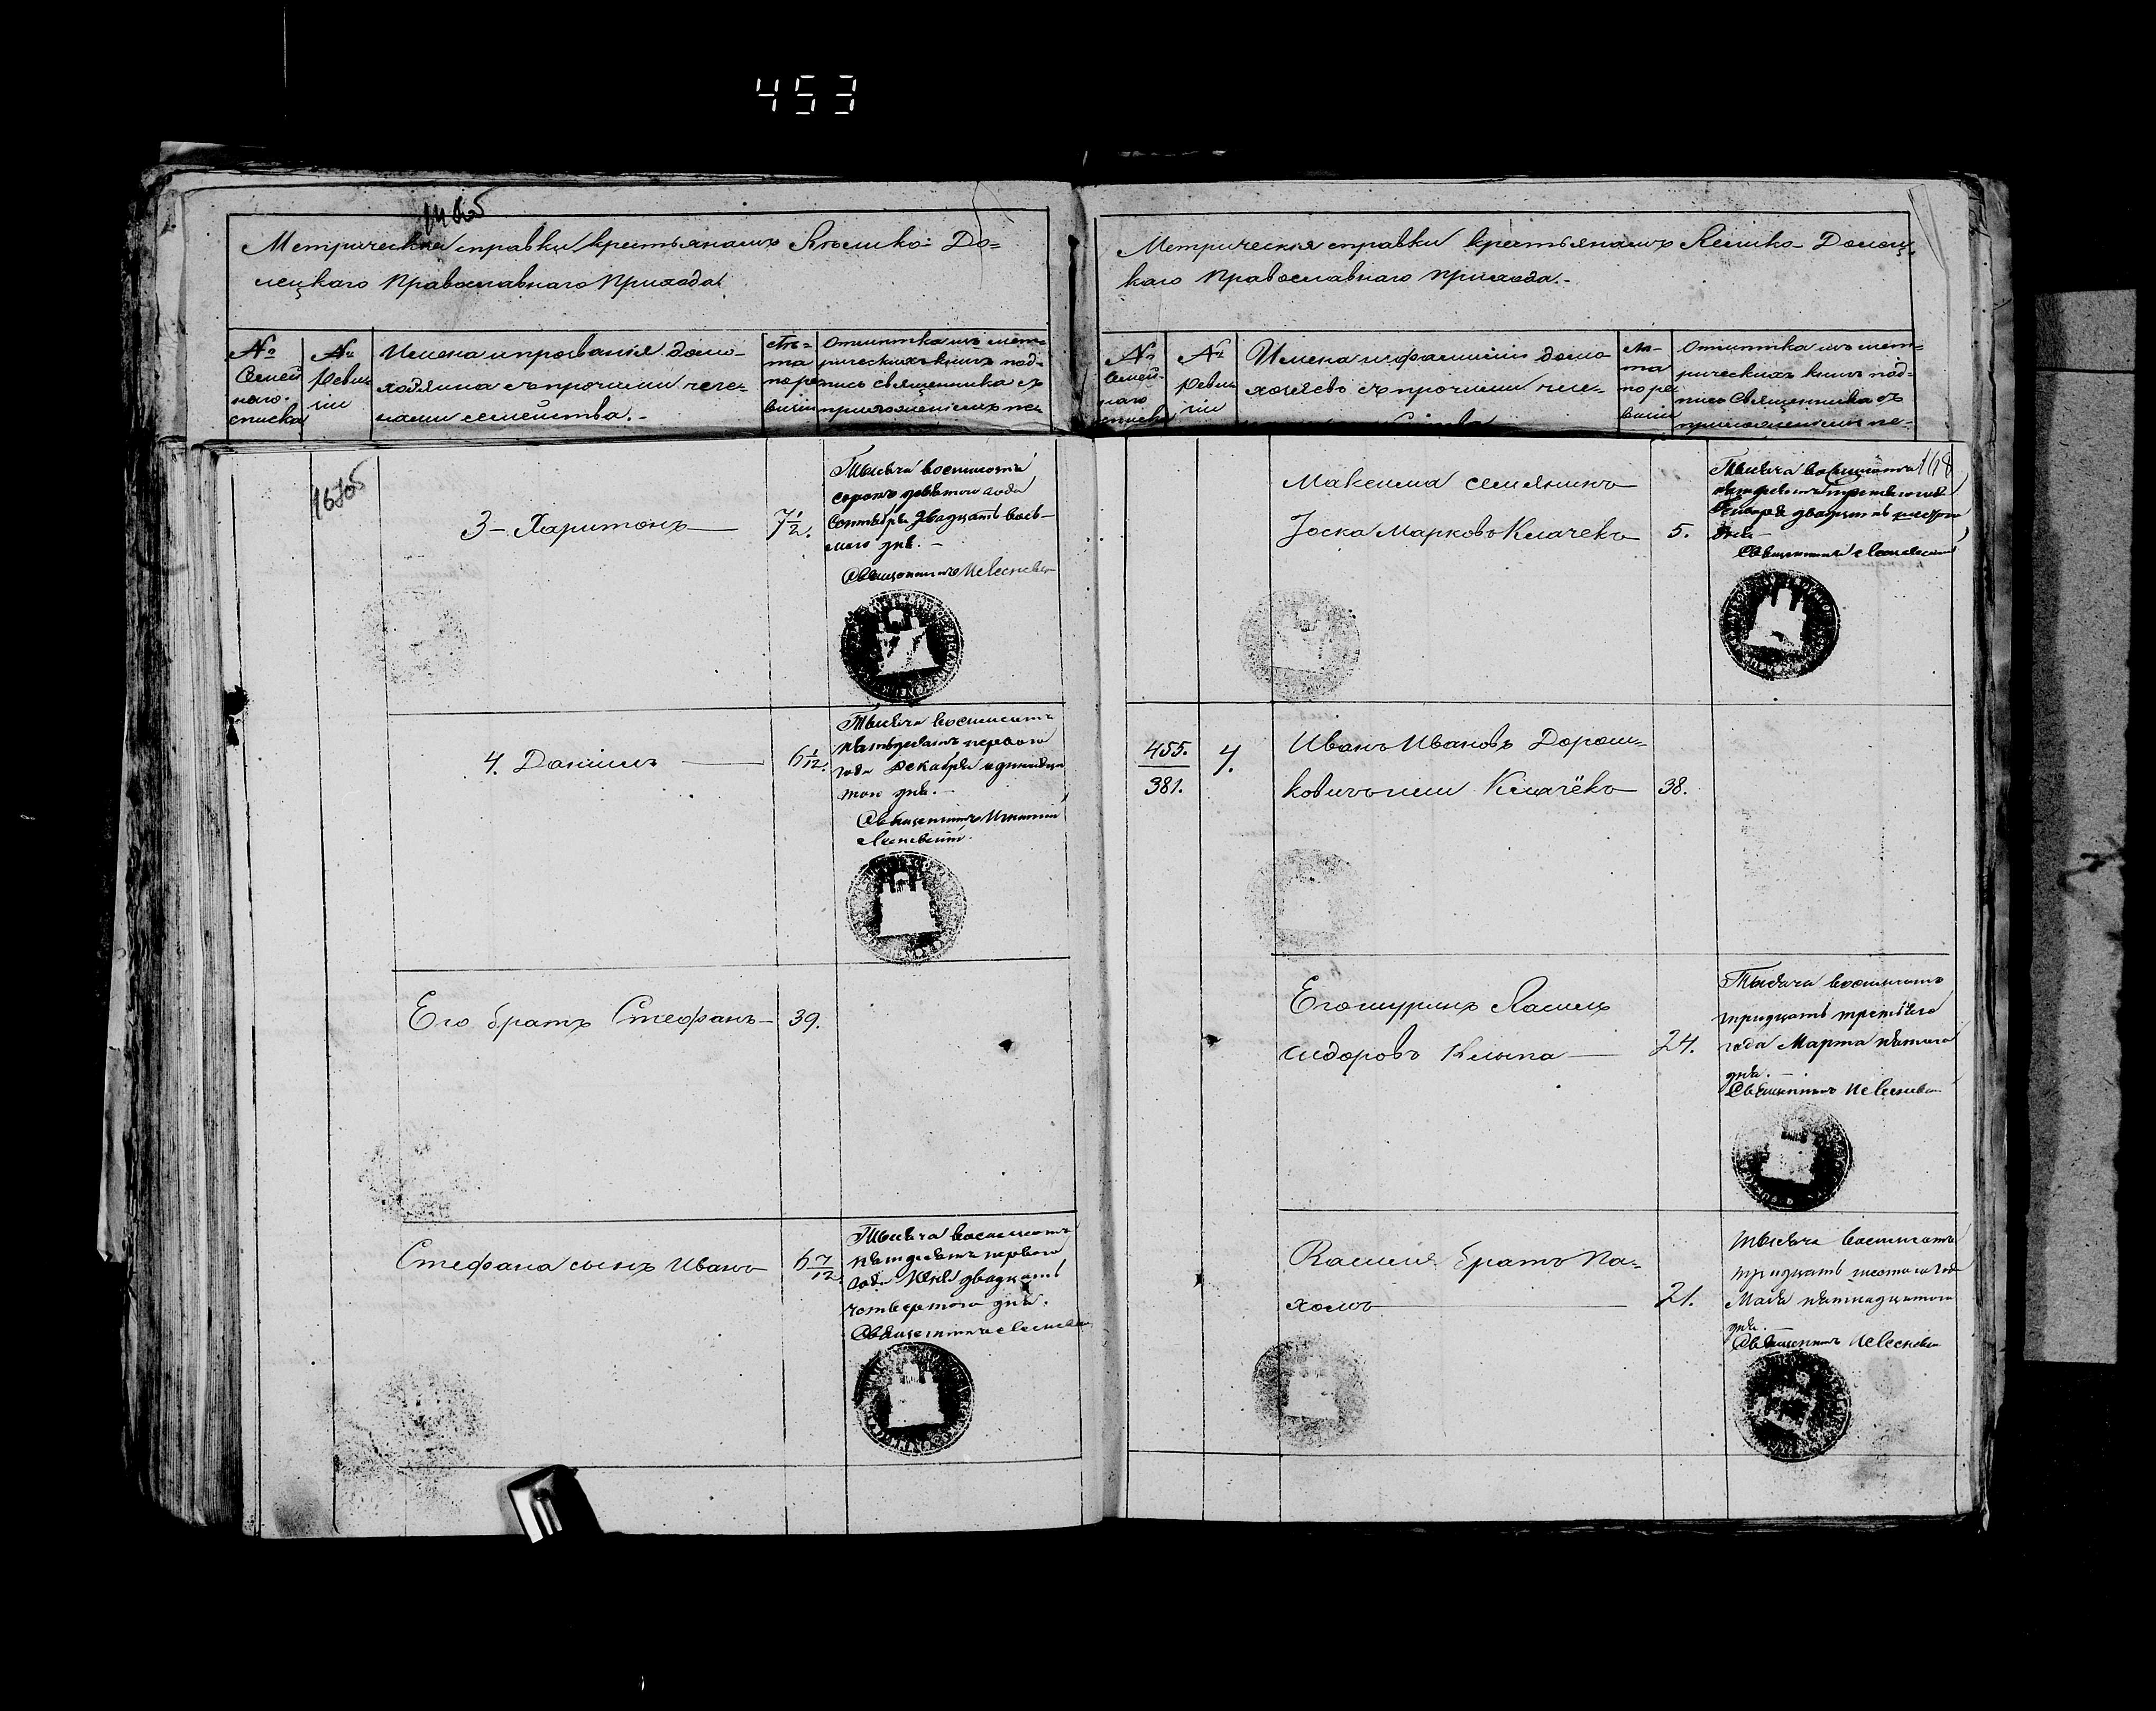 453
Метрическія справки крестьянамъ Велико-До=
лецкаго Православнаго Прихода
№ Семей наго списка
№ Реви зіи
Имена и прозванія домо-
хозяина съ прочими чле-
нами семейства.-
Лѣ= та по ре визіи
Отмѣтка изъ мет=
рическихъ книгъ под=
пись священника съ
приложеніемъ пе=
3- Харитонъ — 7½.
Тысяча восемьсотъ
сорокъ девятого года
Сентября двадцать вось-
мого дня.-
Священникъ
4. Даніилъ — 6 1/12.
Тысяча восемьсотъ
пятьдесятъ перваго
года Декабря одиннадца
того дня.-
Священникъ Игнатій
Его братъ Стефанъ — 39.
Стефана сынъ Иванъ 6 7/12
Тысяча восемьсотъ
пятдесятъ перваго
года Юня двадцать
четвертого дня.
Священникъ
Метрическія справки крестьянамъ Велико-Долец
каго Православнаго Прихода.-
№ Семей- наго списка
№ Реви зіи
Имена и фамиліи домо
хозяевъ съ прочими чле-
Лѣ- та по ре визіи
Отмѣтка изъ мет=
рическихъ книгъ под=
пись Священника съ
приложеніемъ пе-
168
Максима семянинъ
Іоска Марковъ Клачекъ 5.
Тысяча восемьсотъ
пятдесятъ третьяго года
Января двадцать шестого
дня-
Священникъ
455.
381.
4.
Иванъ Ивановъ Дорош=
ковичъ или Клачёкъ 38.
Его шуринъ Василь
Сидоровъ Клыпа — 24.
Тысяча восемьсотъ
тридцать третьяго
года Марта пятаго
дня.-
Священникъ
Василія братъ Па=
хомъ — 21.
Тысяча восемьсотъ
тридцать шестого года
Мая пятнадцатого
дня.-
Священникъ